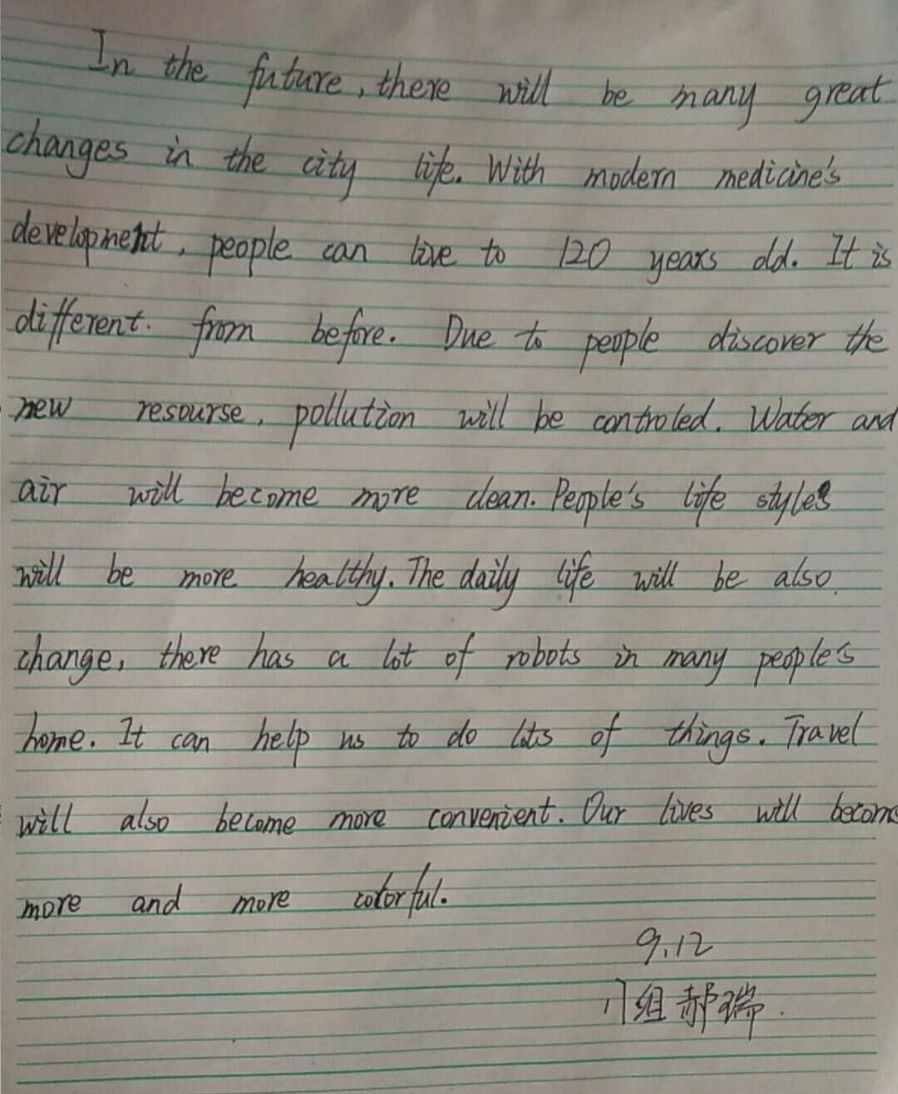 In the future, there will be many great
changes in the city life. With modern medicine's
development, people can live to 120 years old. It is
different. from before. Due to people discover the
new resourse, pollution will be controled. Water and
air will become more clean. People's life styles
will be more healthy. The daily life will be also
change, there has a lot of robots in many people's
home. It can help us to do lots of things. Travel
will also become more convenient. Our lives will become
more and more colorful.
9.12
八组 郝瑞